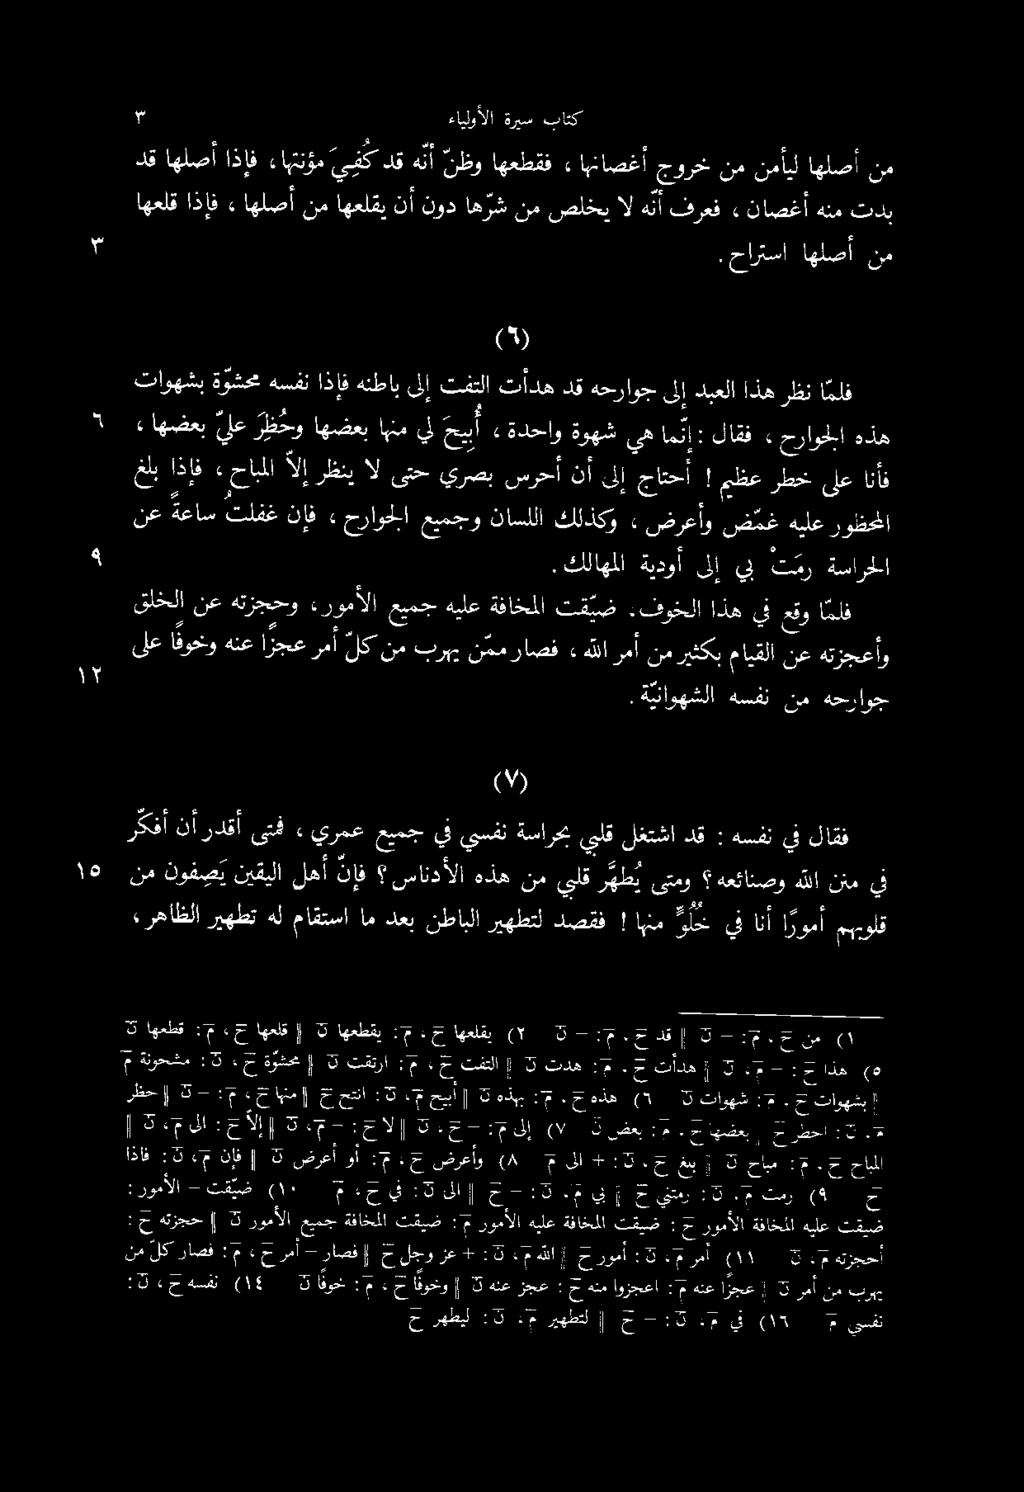 كتاب سيرة الأولياء ٣
من أصلها ليأمن من خروج أغصانها ، فقطعها وظنّ أنّه قد كُفِيَ مؤنتها ، فإذا أصلها قد
بدت منه أغصان ، فعرف أنّه لا يخلص من شرّها دون أن يقلعها من أصلها ، فإذا قلعها
من أصلها استراح . ٣
(٦)
فلمّا نظر هذا العبد إلى جوارحه قد هدأت التفت إلى باطنه فإذا نفسه محشوّة بشهوات
هذه الجوارح ، فقال : إنّما هي شهوة واحدة ، أُبِيحَ لي منها بعضها وحُظِرَ عليّ بعضها ، ٦
فأنا على خطر عظيم ! أحتاج إلى أن أحرس بصري حتى لا ينظر إلّا المباح ، فإذا بلغ
المحظور عليه غمّض وأعرض ، وكذلك اللسان وجميع الجوارح ، فإن غفلتُ ساعةً عن
الحراسة رمَتْ بي إلى أودية المهالك . ٩
فلمّا وقع في هذا الخوف . ضيّقت المخافة عليه جميع الأمور ، وحجزته عن الخلق
وأعجزته عن القيام بكثير من أمر الله ، فصار ممّن يهرب من كلّ أمر عجزًا عنه وخوفًا على
جوارحه من نفسه الشهوانيّة . ١٢
(٧)
فقال في نفسه : قد اشتغل قلبي بحراسة نفسي في جميع عمري ، فمتى أقدر أن أفكّر
في منن الله وصنائعه ؟ ومتى يُطهَّر قلبي من هذه الأدناس ؟ فإنّ أهل اليقين يَصِفون من ١٥
قلوبهم أمورًا أنا في خُلُوٍّ منها ! فقصد لتطهير الباطن بعد ما استقام له تطهير الظاهر ،
١) من ح ، م : – ن ‖ قد ح ، م : – ن ٢) يقلعها ح ، م : يقطعها ن ‖ قلعها ح ، م : قطعها ن
٥) هذا ح : – م ، ن ‖ هدأت ح ، م : هدت ن ‖ التفت ح ، م : ارتقت ن ‖ محشوّة ح ، ن : مشحونة م
‖ بشهوات ح ، م : شهوات ن ٦) هذه ح ، م : بهذه ن ‖ أبيح م ، ن : انتح ح ‖ منها ح ، م : – ن ‖ حظر
م ، ن : احطر ح ‖ بعضها ح ، م : بعض ن ٧) إلى م : – ح ، ن ‖ لا ح : – م ، ن ‖ إلّا ح : الى م ، ن ‖
المباح ح ، م : مباح ن ‖ بلغ ح ، ن : + الى م ٨) وأعرض ح ، م : أو أعرض ن ‖ فإن م ، ن : فاذا
ح ٩) رمت م ، ن : رمتني ح ‖ بي م ، ن : – ح ‖ الى ن : في ح ، م ١٠) ضيّقت – الأمور :
ضيقت عليه المخافة الأمور ح : ضيقت المخافة عليه الأمور م : ضيقت المخافة جميع الأمور ن ‖ حجزته ح :
أحجزته م ، ن ١١) أمر م ، ن : أمور ح ‖ الله م ، ن : + عز وجل ح ‖ فصار – أمر ح ، م : فصار كلّ من
يهرب من أمر ن ‖ عجزًا عنه م : اعجزوا منه ح : عجز عنه ن ‖ وخوفًا ح ، م : خوفًا ن ١٤) نفسه ح ، ن :
نفسي م ١٦) في م ، ن : – ح ‖ لتطهير م ، ن : ليطهر ح